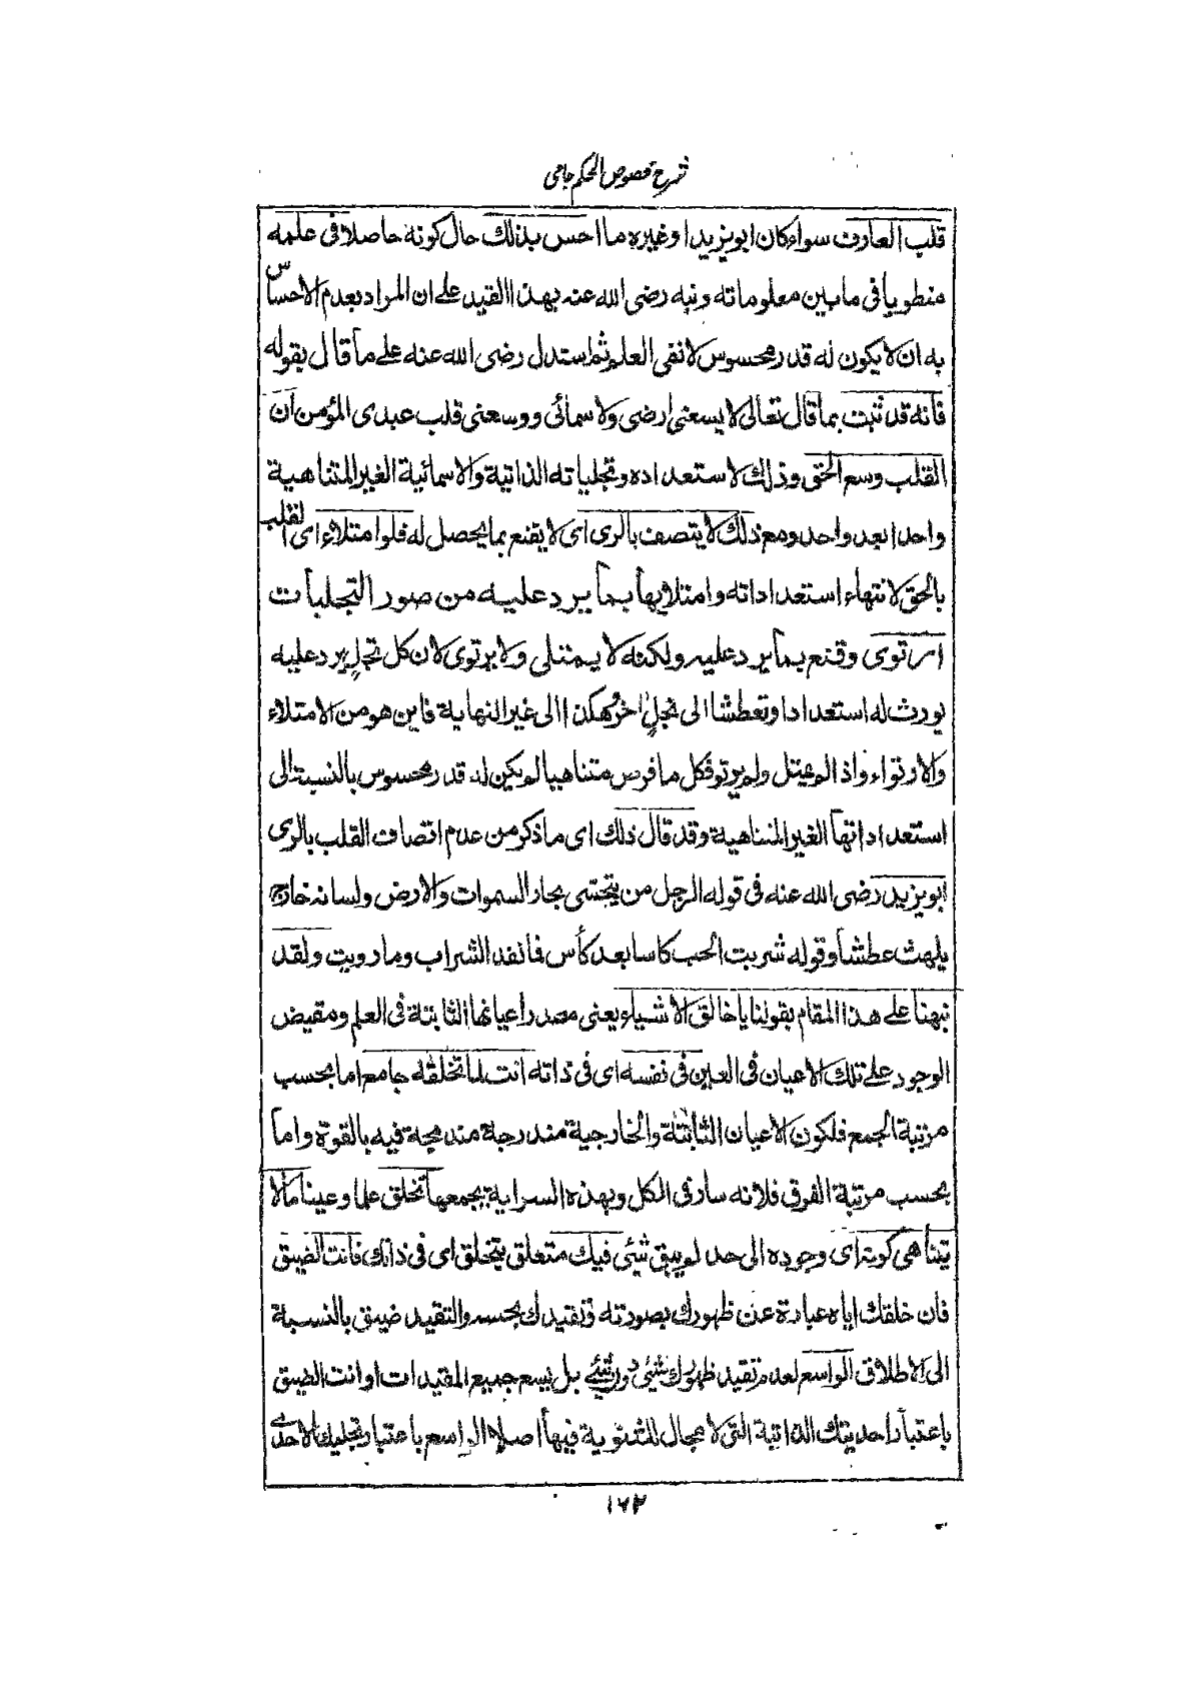 شرح فصوص الحكم جامى
قلب العارف سواء كان ابويزيد او غيره ما احس بذلك حال كونه حاصلا فى علمه
منطويا فى مابين معلوماته ونبه رضى الله عنه بهذا القيد على ان المراد بعدم الاحساس
به ان لا يكون له قدر محسوس لا نفى العلم ثم استدل رضى الله عنه على ما قال بقوله
فانه قد ثبت بما قال تعالى لا يسعنى ارضى ولا سمائى ووسعنى قلب عبدى المؤمن ان
القلب وسع الحق وذلك لاستعداده وتجلياته الذاتية والاسمائية الغير المتناهية
واحدا بعد واحد ومع ذلك لا يتصف بالرى اى لا يقنع بما يحصل له فلو امتلاء اى القلب
بالحق لانتهاء استعداداته وامتلايها بما يرد عليه من صور التجليات
ارتوى وقنع بما يرد عليه ولكنه لا يمتلى ولا يرتوى لان كل تجلٍ يرد عليه
يورث له استعدادا وتعطشا الى تجلٍ اخر وهكذا الى غير النهاية فاين هو من الامتلاء
والارتواء واذا لم يمتل ولم يرتو فكل ما فرض متناهيا لم يكن له قدر محسوس بالنسبة الى
استعداداتها الغير المتناهية وقد قال ذلك اى ما ذكر من عدم اتصاف القلب بالرى
ابويزيد رضى الله عنه فى قوله الرجل من يتحسى بحار السموات والارض ولسانه خارج
يلهث عطشا وقوله شربت الحب كاسا بعد كأس فما نفد الشراب وما رويت ولقد
نبهنا على هذا المقام بقولنا يا خالق الاشياء يعنى مصدر اعيانها الثابتة فى العلم ومفيض
الوجود على تلك الاعيان فى العين فى نفسه اى فى ذاته انت لما تخلقه جامع اما بحسب
مرتبة الجمع فلكون الاعيان الثابتة والخارجية مندرجة مندمجة فيه بالقوة واما
بحسب مرتبة الفرق فلانه سار فى الكل وبهذه السراية يجمعها تخلق علما وعينا مالا
يتناهى كونه اى وجوده الى حد لم يبق شئى فيك متعلق بتخلق اى فى ذاتك فانت الضيق
فان خلقك اياه عبارة عن ظهورك بصورته وتقيدك بحسبه والتقيد ضيق بالنسبة
الى الاطلاق الواسع لعدم تقيد ظهورك بشئى دون شئى بل يسع جميع المقيدات او انت الضيق
باعتبار احديتك الذاتية التى لا مجال للثنوية فيها اصلا الواسع باعتبار تجليك الاحدى
١٦٢